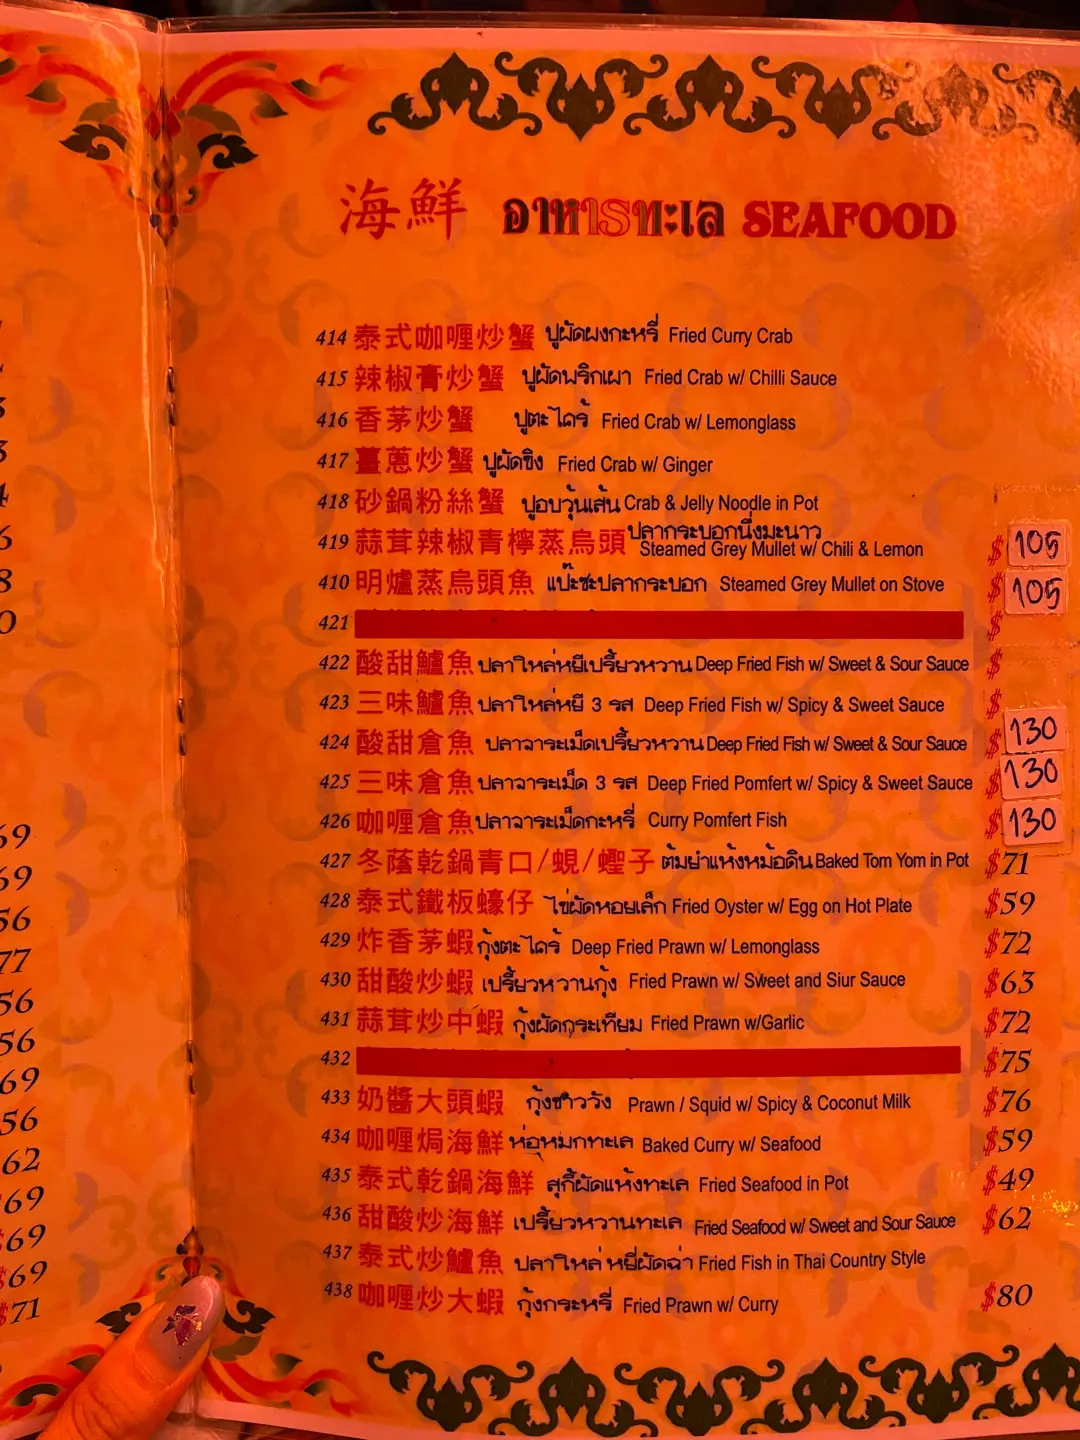 海鮮 อาหารทะเล SEAFOOD
414 泰式咖喱炒蟹 ปูผัดผงกะหรี่ Fried Curry Crab
415 辣椒膏炒蟹 ปูผัดพริกเผา Fried Crab w/ Chilli Sauce
416 香茅炒蟹 ปูตะไคร้ Fried Crab w/ Lemonglass
417 薑蔥炒蟹 ปูผัดขิง Fried Crab w/ Ginger
418 砂鍋粉絲蟹 ปูอบวุ้นเส้น Crab & Jelly Noodle in Pot
419 蒜茸辣椒青檸蒸烏頭 ปลากระบอกนึ่งมะนาว Steamed Grey Mullet w/ Chili & Lemon $ 105
410 明爐蒸烏頭魚 แป๊ะซะปลากระบอก Steamed Grey Mullet on Stove $ 105
421 $
422 酸甜鱸魚 ปลาใหล่หยีเปรี้ยวหวาน Deep Fried Fish w/ Sweet & Sour Sauce $
423 三味鱸魚 ปลาใหล่หยี 3 รส Deep Fried Fish w/ Spicy & Sweet Sauce $
424 酸甜倉魚 ปลาจาระเม็ดเปรี้ยวหวาน Deep Fried Fish w/ Sweet & Sour Sauce $ 130
425 三味倉魚 ปลาจาระเม็ด 3 รส Deep Fried Pomfert w/ Spicy & Sweet Sauce $ 130
426 咖喱倉魚 ปลาจาระเม็ดกะหรี่ Curry Pomfert Fish $ 130
427 冬蔭乾鍋青口/蜆/蟶子 ต้มยำแห้งหม้อดิน Baked Tom Yom in Pot $71
428 泰式鐵板蠔仔 ไข่ผัดหอยเล็ก Fried Oyster w/ Egg on Hot Plate $59
429 炸香茅蝦 กุ้งตะไคร้ Deep Fried Prawn w/ Lemonglass $72
430 甜酸炒蝦 เปรี้ยวหวานกุ้ง Fried Prawn w/ Sweet and Siur Sauce $63
431 蒜茸炒中蝦 กุ้งผัดกระเทียม Fried Prawn w/Garlic $72
432 $75
433 奶醬大頭蝦 กุ้งชาววัง Prawn / Squid w/ Spicy & Coconut Milk $76
434 咖喱焗海鮮 ห่อหมกทะเล Baked Curry w/ Seafood $59
435 泰式乾鍋海鮮 สุกี้ผัดแห้งทะเล Fried Seafood in Pot $49
436 甜酸炒海鮮 เปรี้ยวหวานทะเล Fried Seafood w/ Sweet and Sour Sauce $62
437 泰式炒鱸魚 ปลาใหล่หยี่ผัดฉ่า Fried Fish in Thai Country Style
438 咖喱炒大蝦 กุ้งกระหรี่ Fried Prawn w/ Curry $80
69
69
56
77
56
56
69
56
62
69
$69
$69
$71